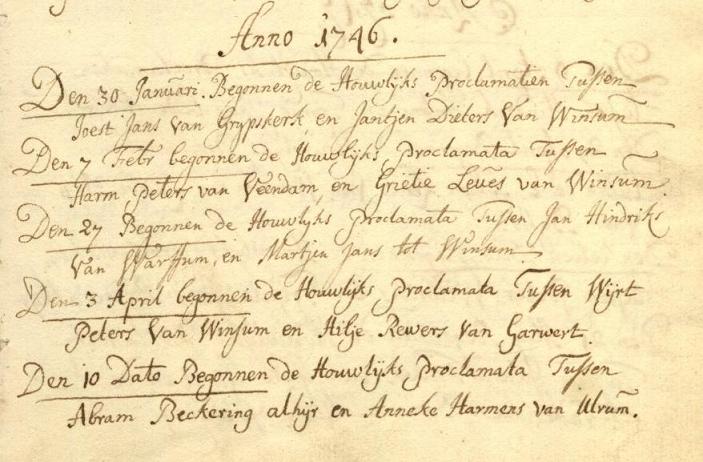 Anno 1746.
Den 30 Januari. Begonnen de Houwlijks Proclamatien Tussen
Joest Jans Van Grypskerk, en Jantjen Dieters Van Winsum
Den 7 Febr begonnen de Houwlijks Proclamata Tussen
Harm Peters van Veendam, en Grietie van Winsum.
Den 27 Begonnen de Houwlijks Proclamata Tussen Jan Hindriks
Van Warffum, en Martjen Jans tot Winsum
Den 3 April begonnen de Houwlijks Proclamata Tussen Wijrt
Peters Van Winsum en Hilje Rewers Van Garwert.
Den 10 Dato Begonnen de Houwlijks Proclamata Tussen
Abram Beckering alhijr en Anneke Harmens van Ulrum.